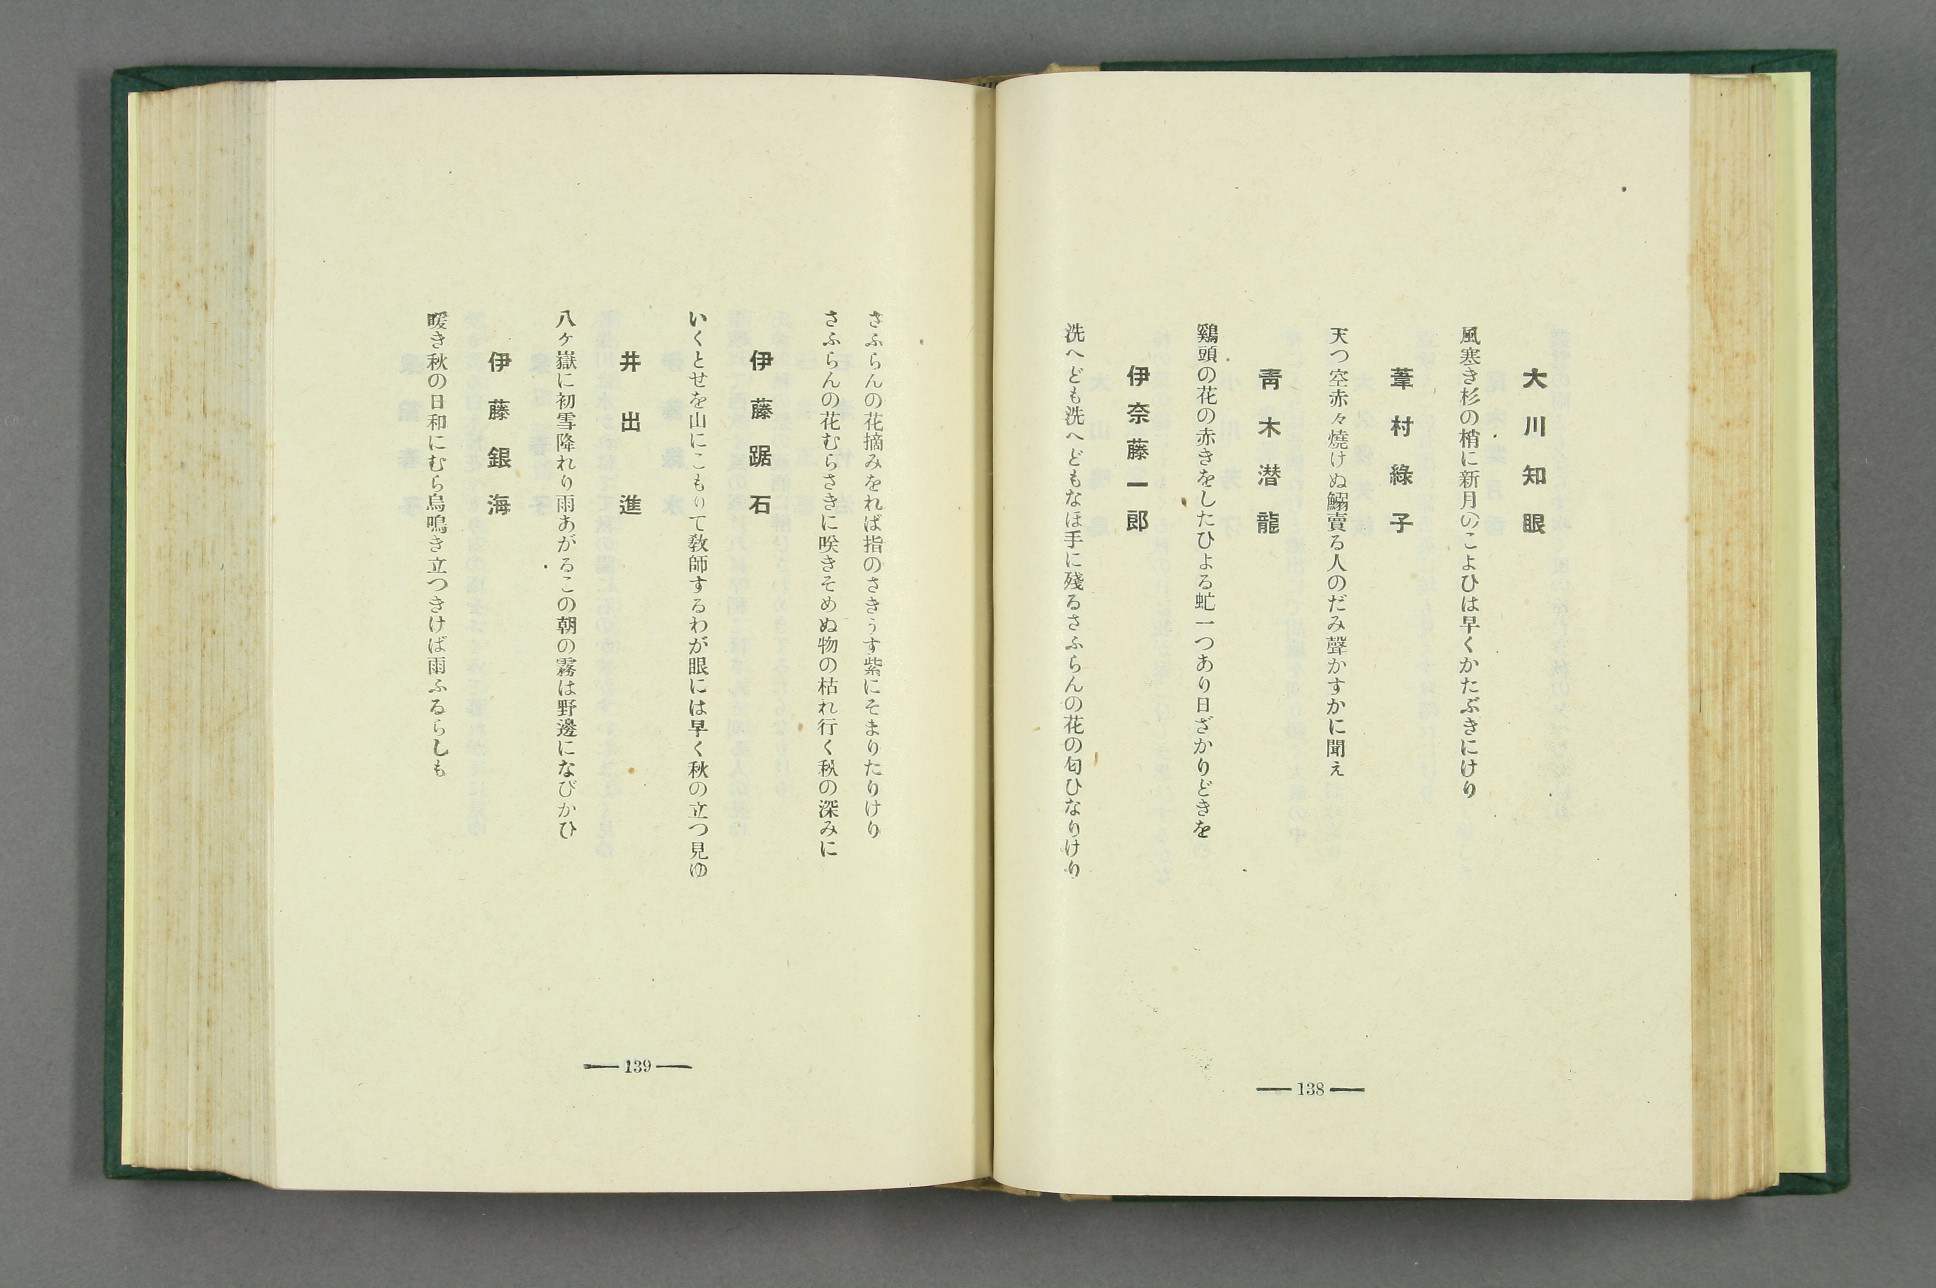 大川知眼
風寒き杉の梢に新月のこよひは早くかたぶきにけり
葦村綠子
天つ空赤々燒けぬ鰯賣る人のだみ聲かすかに聞え
靑木潜龍
鷄頭の花の赤きをしたひよる虻一つあり日ざかりどきを
伊奈藤一郎
洗へども洗へどもなほ手に殘るさふらんの花の匂ひなりけり
138
さふらんの花摘みをれば指のさきうす紫にそまりたりけり
さふらんの花むらさきに咲きそめぬ物の枯れ行く秋の深みに
伊藤踞石
いくとせを山にこもりて敎師するわが眼には早く秋の立つ見ゆ
井出進
八ヶ嶽に初雪降れり雨あがるこの朝の霧は野邊になびかひ
伊藤銀海
暖き秋の日和にむら烏鳴き立つきけば雨ふるらしも
139